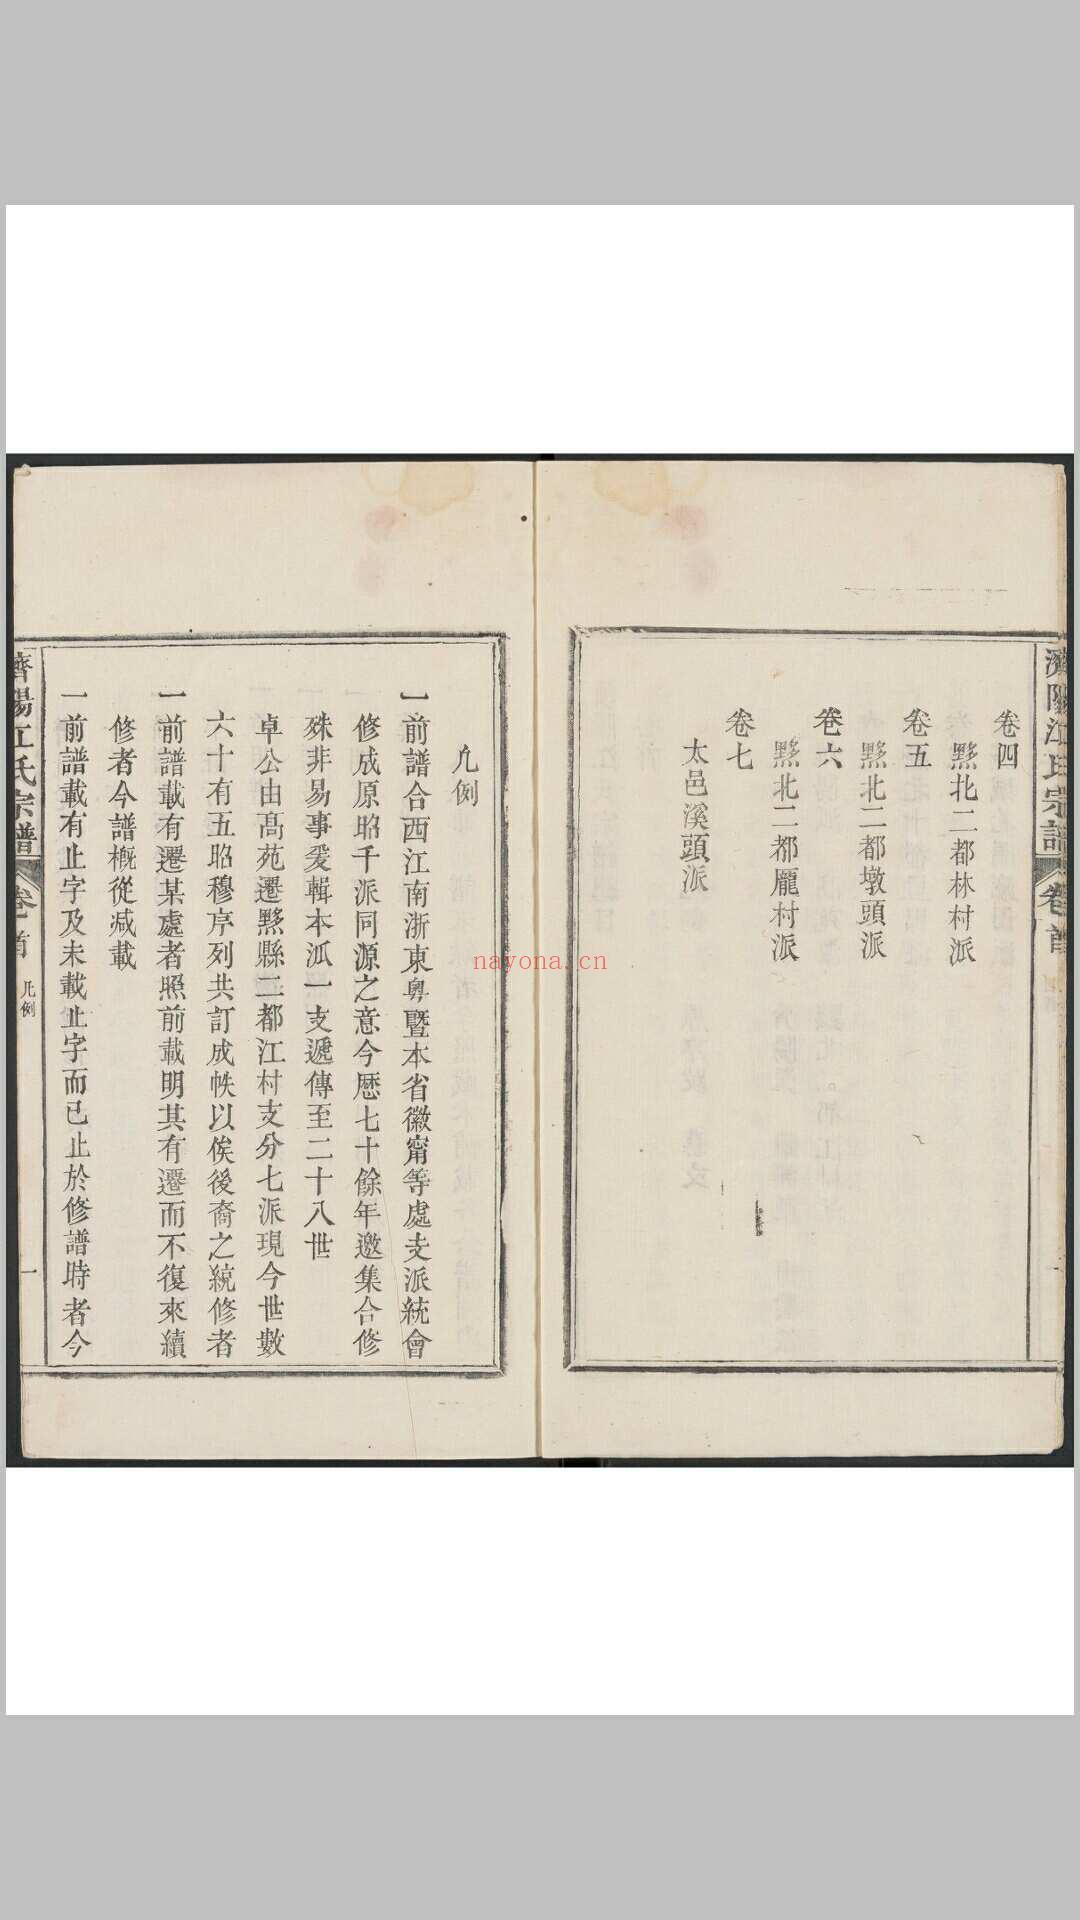 濟陽江氏宗譜 卷首
卷四
黟北二都林村派
卷五
黟北二都墩頭派
卷六
黟北二都龐村派
卷七
太邑溪頭派
凡例
一前譜合西江南浙東粵暨本省徽甯等處支派統會
修成原昭千派同源之意今歷七十餘年邀集合修
殊非易事爰輯本派一支遞傳至二十八世
卓公由髙苑遷黟縣二都江村支分七派現今世數
六十有五昭穆序列共訂成帙以俟後裔之統修者
一前譜載有遷某處者照前載明其有遷而不復來續
修者今譜概從減載
一前譜載有止字及未載止字而已止於修譜時者今
濟陽江氏宗譜 卷首 凡例 一
nayona.cn